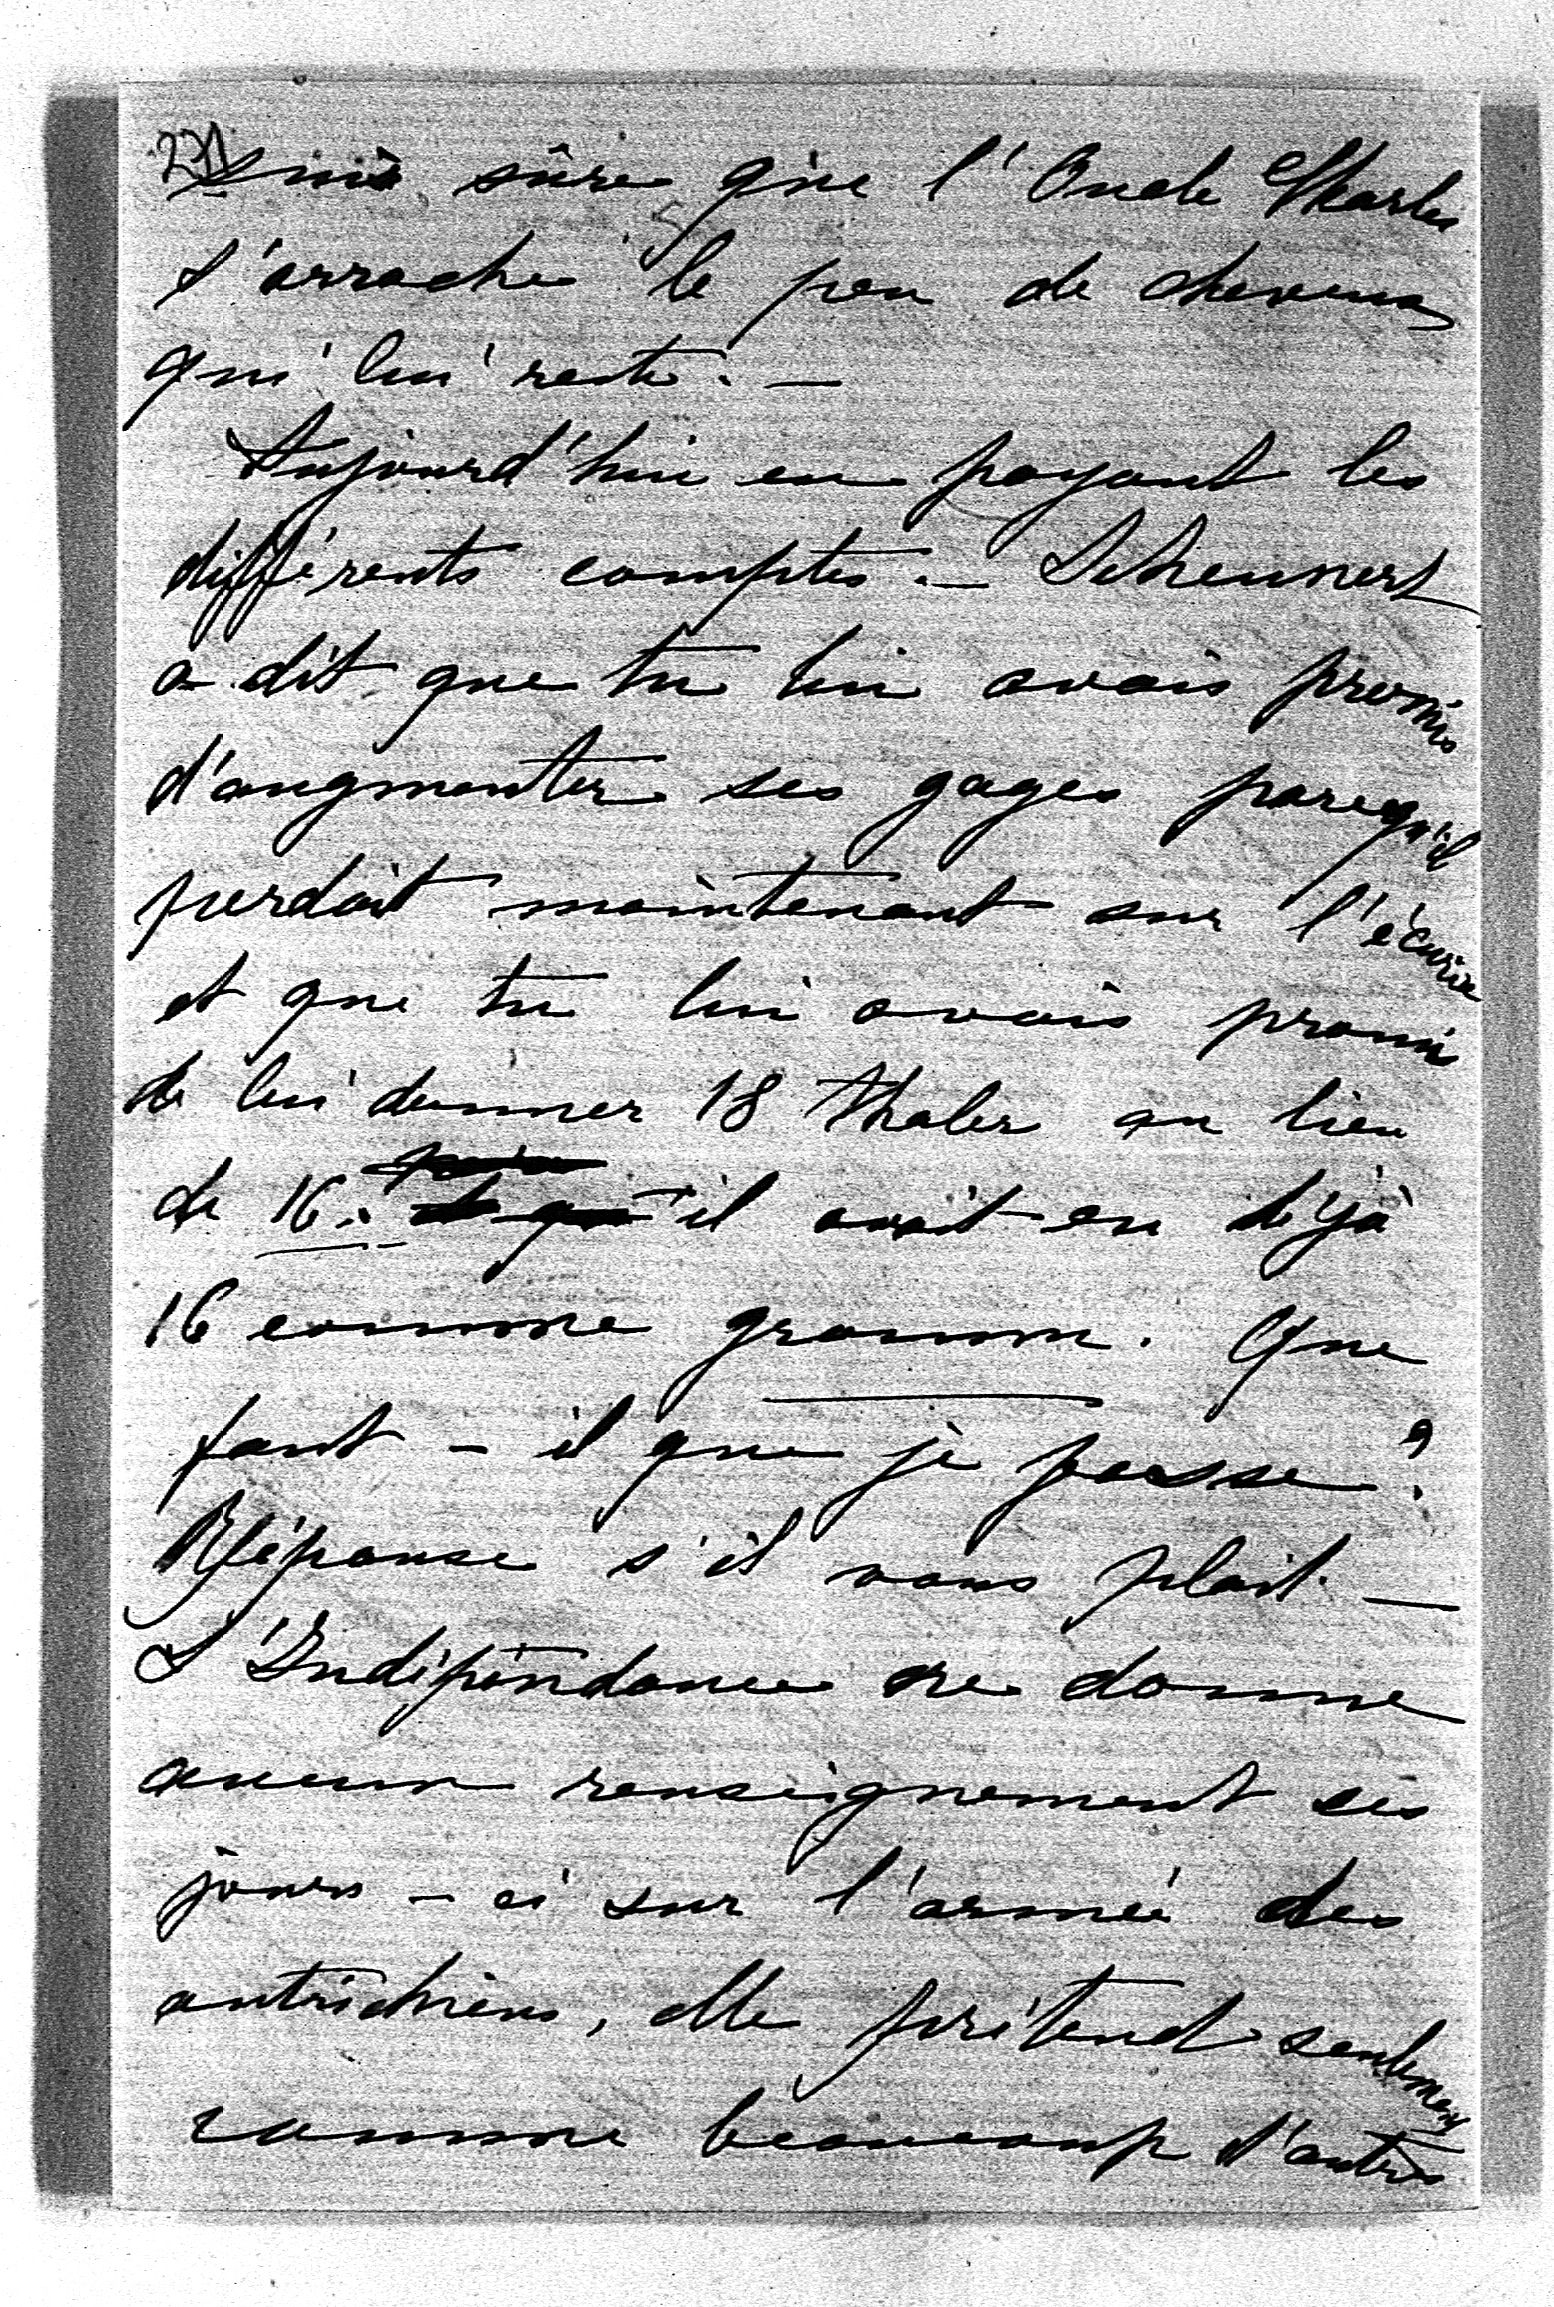 221
suis sûre que l'Oncle Charles
s'arrache le peu de cheveux
qui lui reste. —
Aujourd'hui en payant les
différents comptes. — Scheunert
a dit que tu lui avais promis
d'augmenter ses gages parcequ'il
perdait maintenant sur l'écurie
et que tu lui avais promis
de lui donner 18 Thaler au lieu
de 16. il avait eu déjà
16 comme groomm. Que
faut-il que je fasse?
Réponse s'il vous plait. —
L'Indépendance ne donne
aucun renseignement ces
jours-ci sur l'armée des
autrichiens, elle prétend seulement
comme beaucoup d'autres